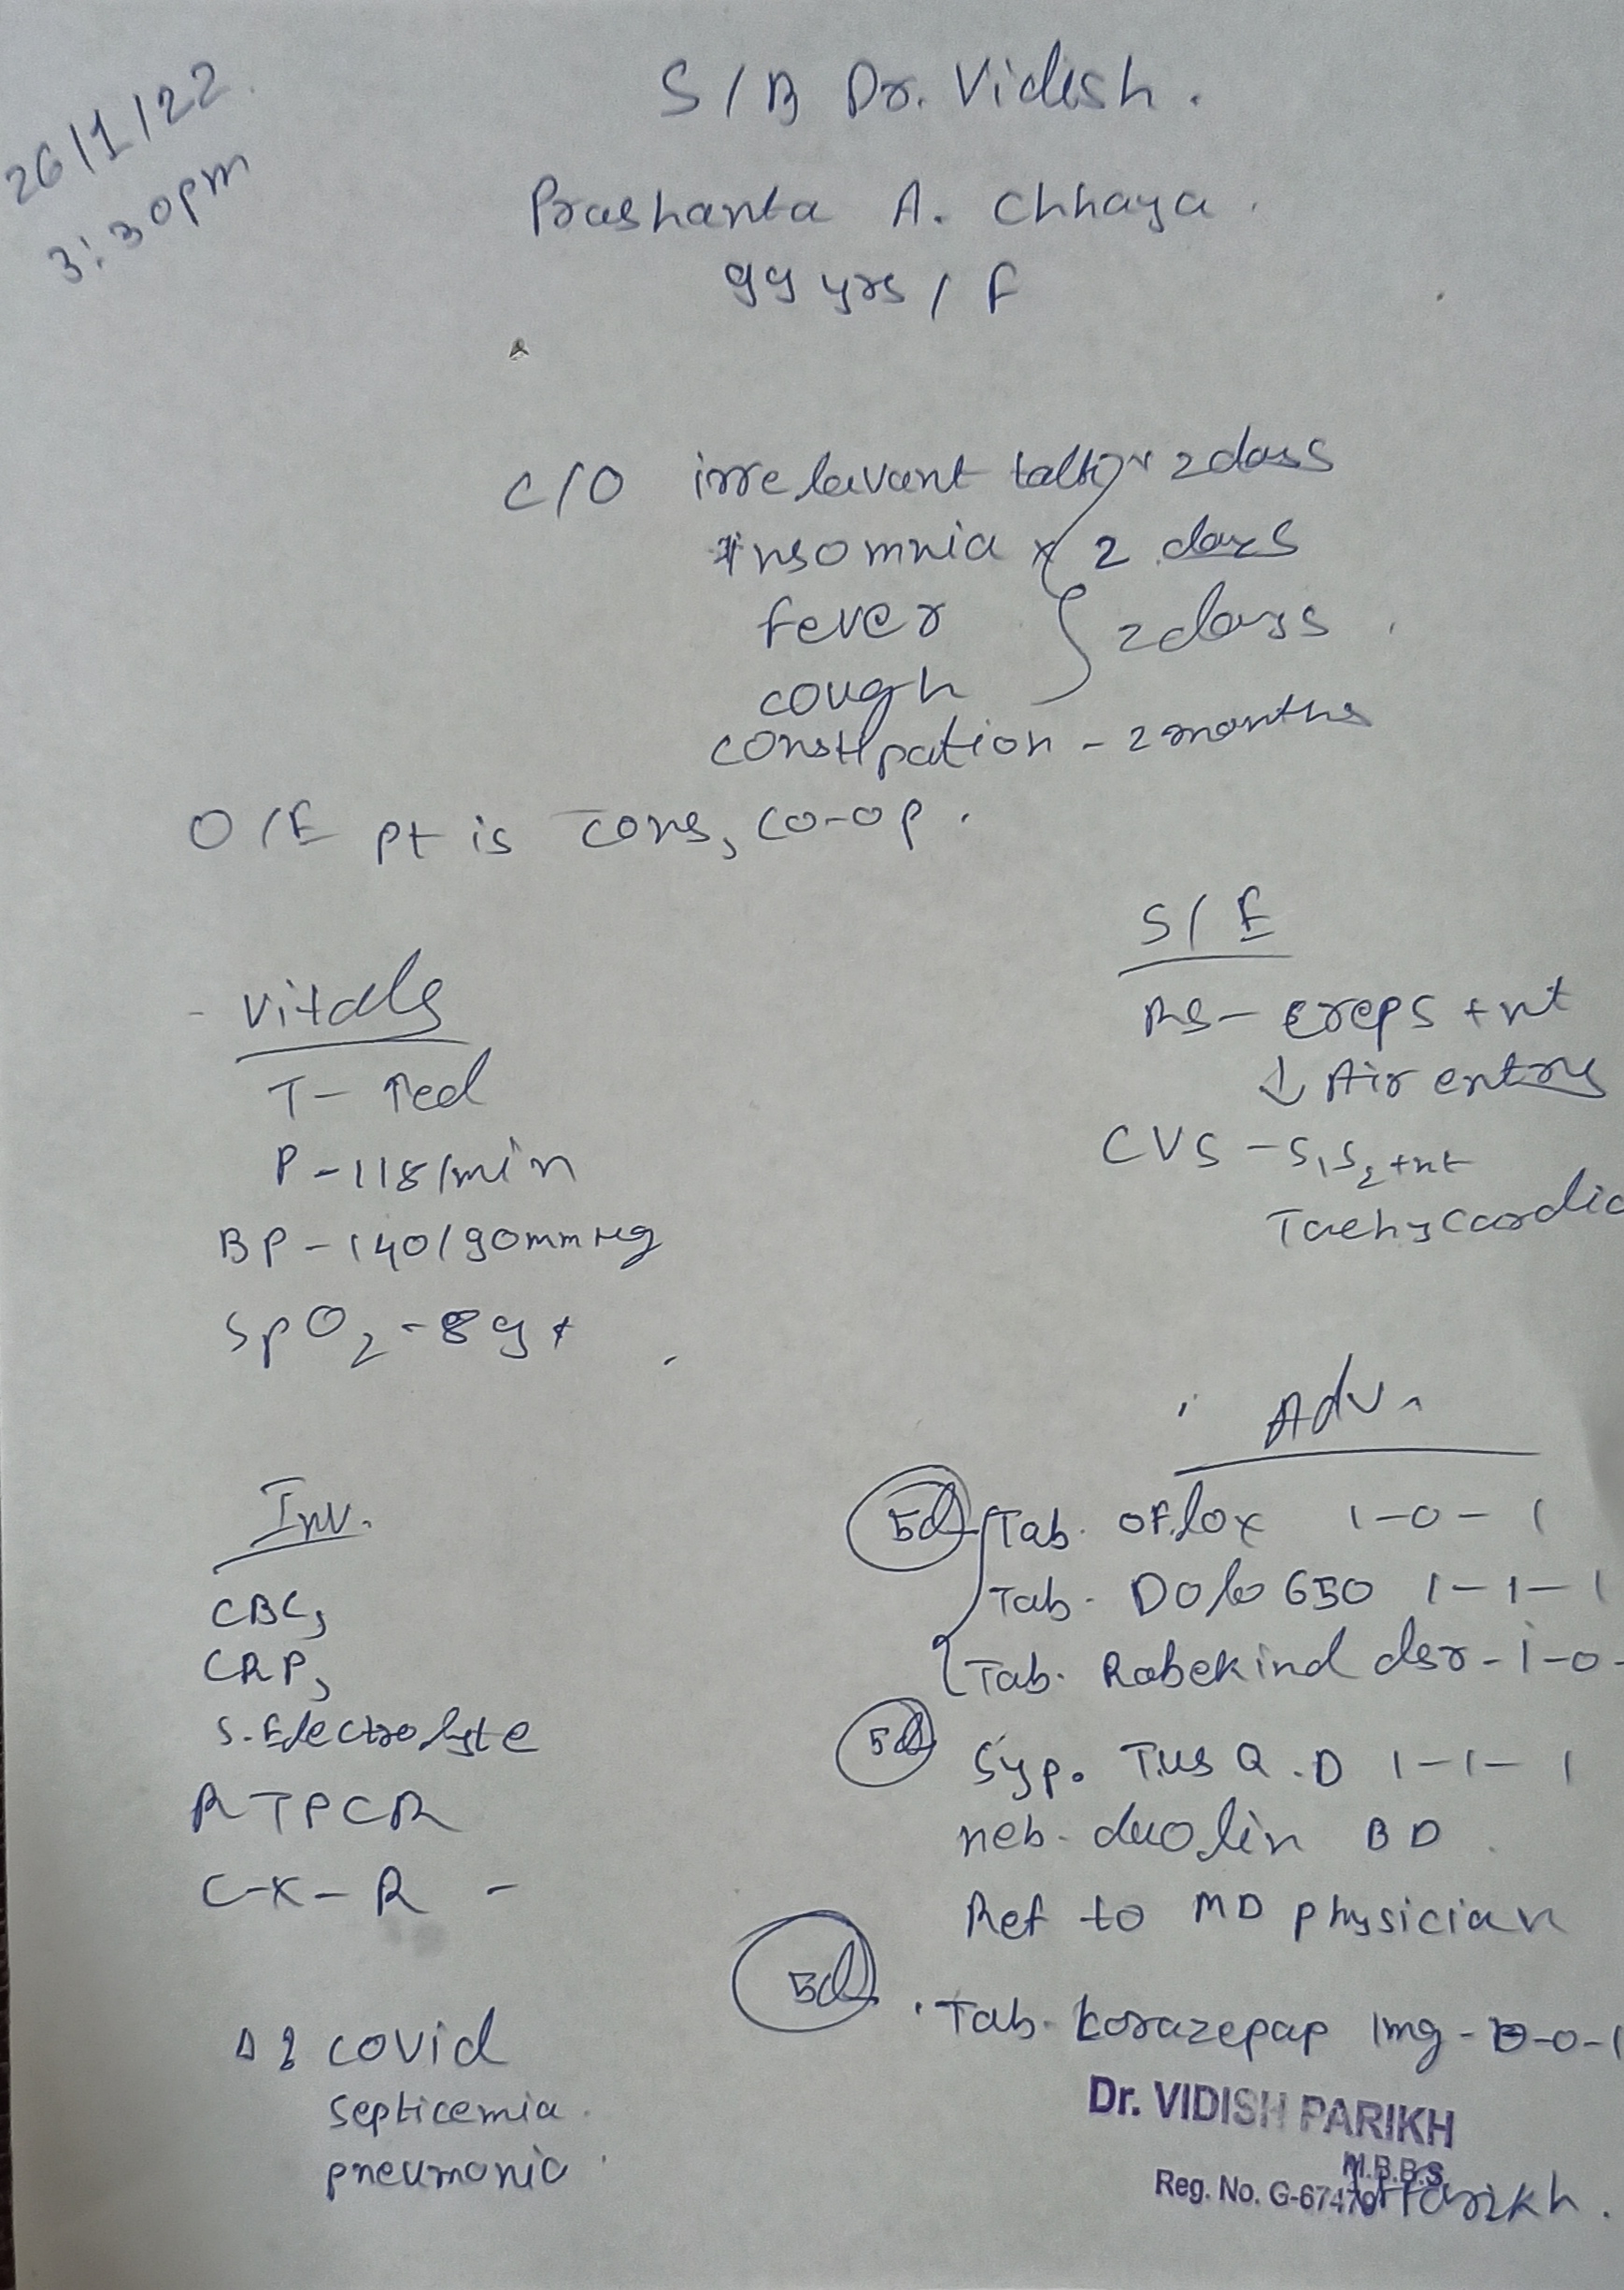 26/1/22
3:30pm
S/B Dr. Vidish.
Prashanta A. Chhaya.
99 yrs / F
C/O irrelevant talk x 2days
Insomnia x 2 days
fever
cough } 2days.
constipation - 2months
O/E pt is cons, co-op.
Vitals
T- Ted
P-118/min
BP-140/90mmHg
SpO2-89
S/E
RS- creps +nt
↓ Air entry
CVS-S1S2+nt
Tachycardia
Inv.
CBC,
CRP,
S. Electrolyte
RTPCR
C-X-R -
Adv.
5d Tab. oflox 1-0-1
Tab. Dolo 650 1-1-1
Tab. Rabekind dsr-1-0-
5d Syp. Tus Q.D 1-1-1
neb. duolin BD
Ref to MD physician
5d Tab. Lorazepap 1mg -0-0-1
covid
septicemia
pneumonia
Dr. VIDISH PARIKH
M.B.B.S.
Reg. No. G-67479